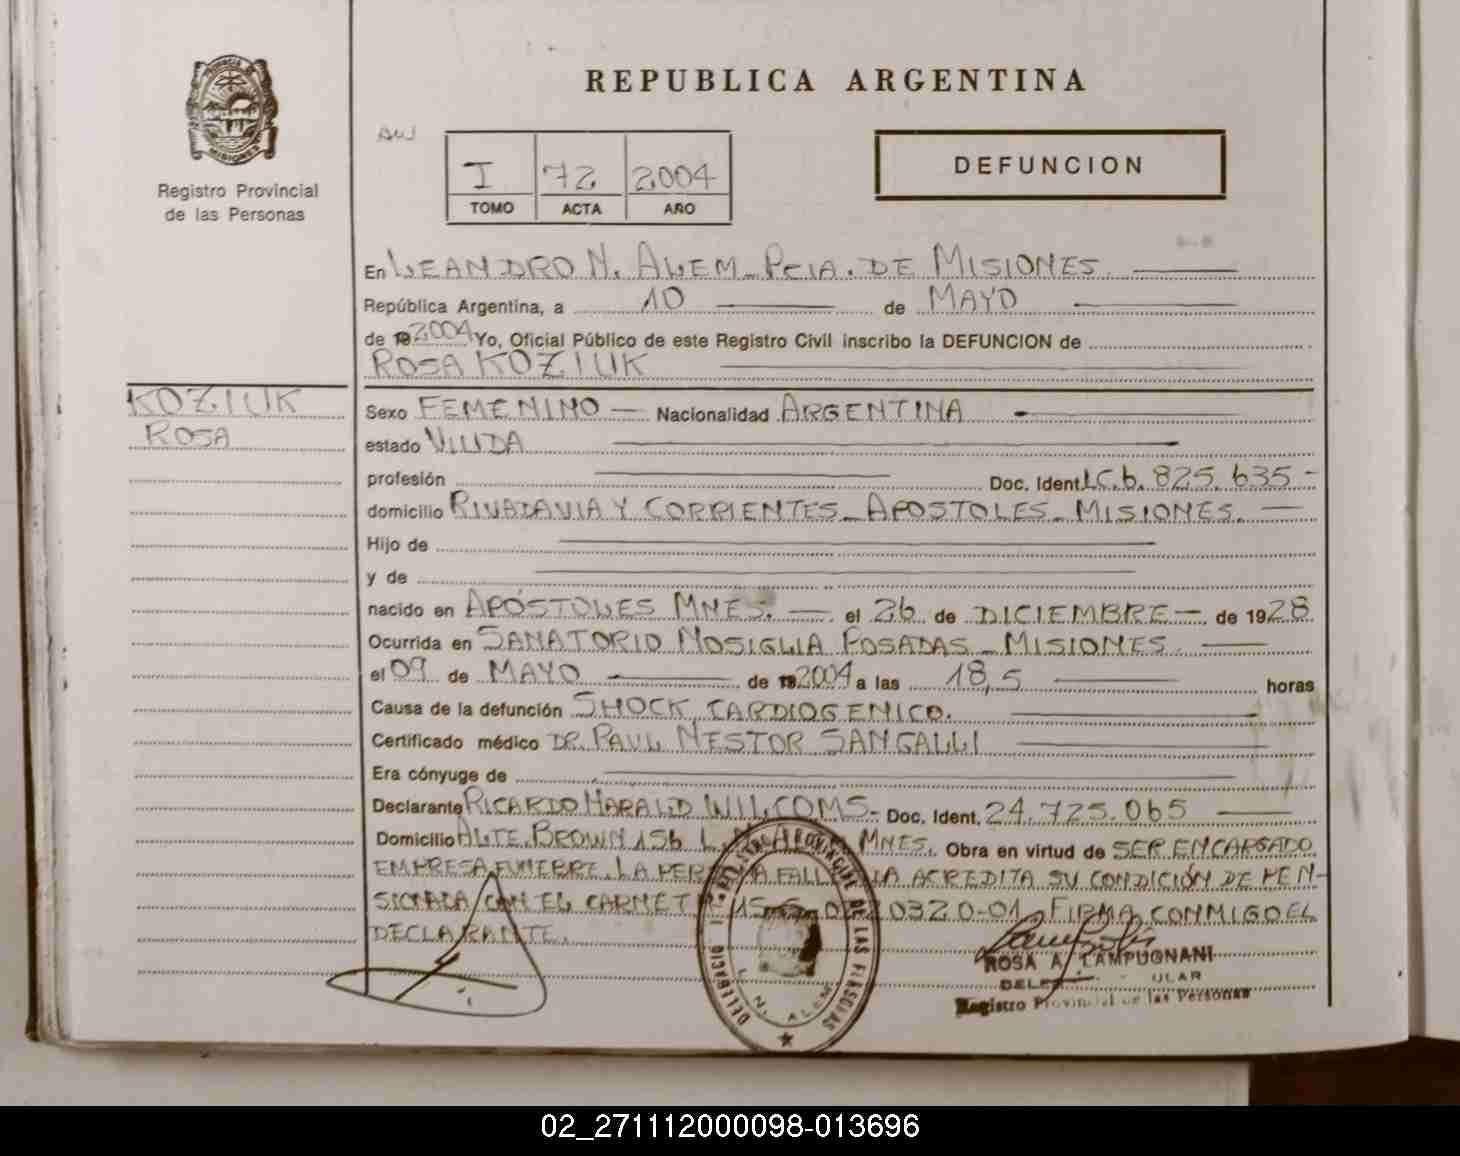 REPUBLICA ARGENTINA
MISIONES
Registro Provincial
de las Personas
I 72 2004
TOMO ACTA AÑO
DEFUNCION
En LEANDRO N. ALEM - PCIA. DE MISIONES
República Argentina, a 10 de MAYO
de 2004 Yo, Oficial Público de este Registro Civil inscribo la DEFUNCION de
ROSA KOZIUK
KOZIUK
ROSA
Sexo FEMENINO - Nacionalidad ARGENTINA
estado VIUDA
profesión Doc. Ident. L.C. 6.825.635 -
domicilio RIVADAVIA Y CORRIENTES - APOSTOLES - MISIONES. -
Hijo de
y de
nacido en APÓSTOLES MNES. - el 26 de DICIEMBRE - de 1928
Ocurrida en SANATORIO NOSIGLIA POSADAS - MISIONES.
el 09 de MAYO de 2004 a las 18,5 horas
Causa de la defunción SHOCK CARDIOGENICO.
Certificado médico DR. PAUL NESTOR SANGALLI
Era cónyuge de
Declarante RICARDO HARALD WILCOMS - Doc. Ident. 24.725.065
Domicilio ALTE. BROWN 156 L. N. MNES. Obra en virtud de SER ENCARGADO
EMPRESA FUNEBRE. LA ACREDITA SU CONDICIÓN DE PEN-
SIONADA CON EL CARNET 0320-01 FIRMA CONMIGO EL
DECLARANTE.
DELEGACIO
DE LAS PERSONAS
L. N. ALEM
ROSA A. LAMPUGNANI
Registro Provincial de las Personas
02_271112000098-013696